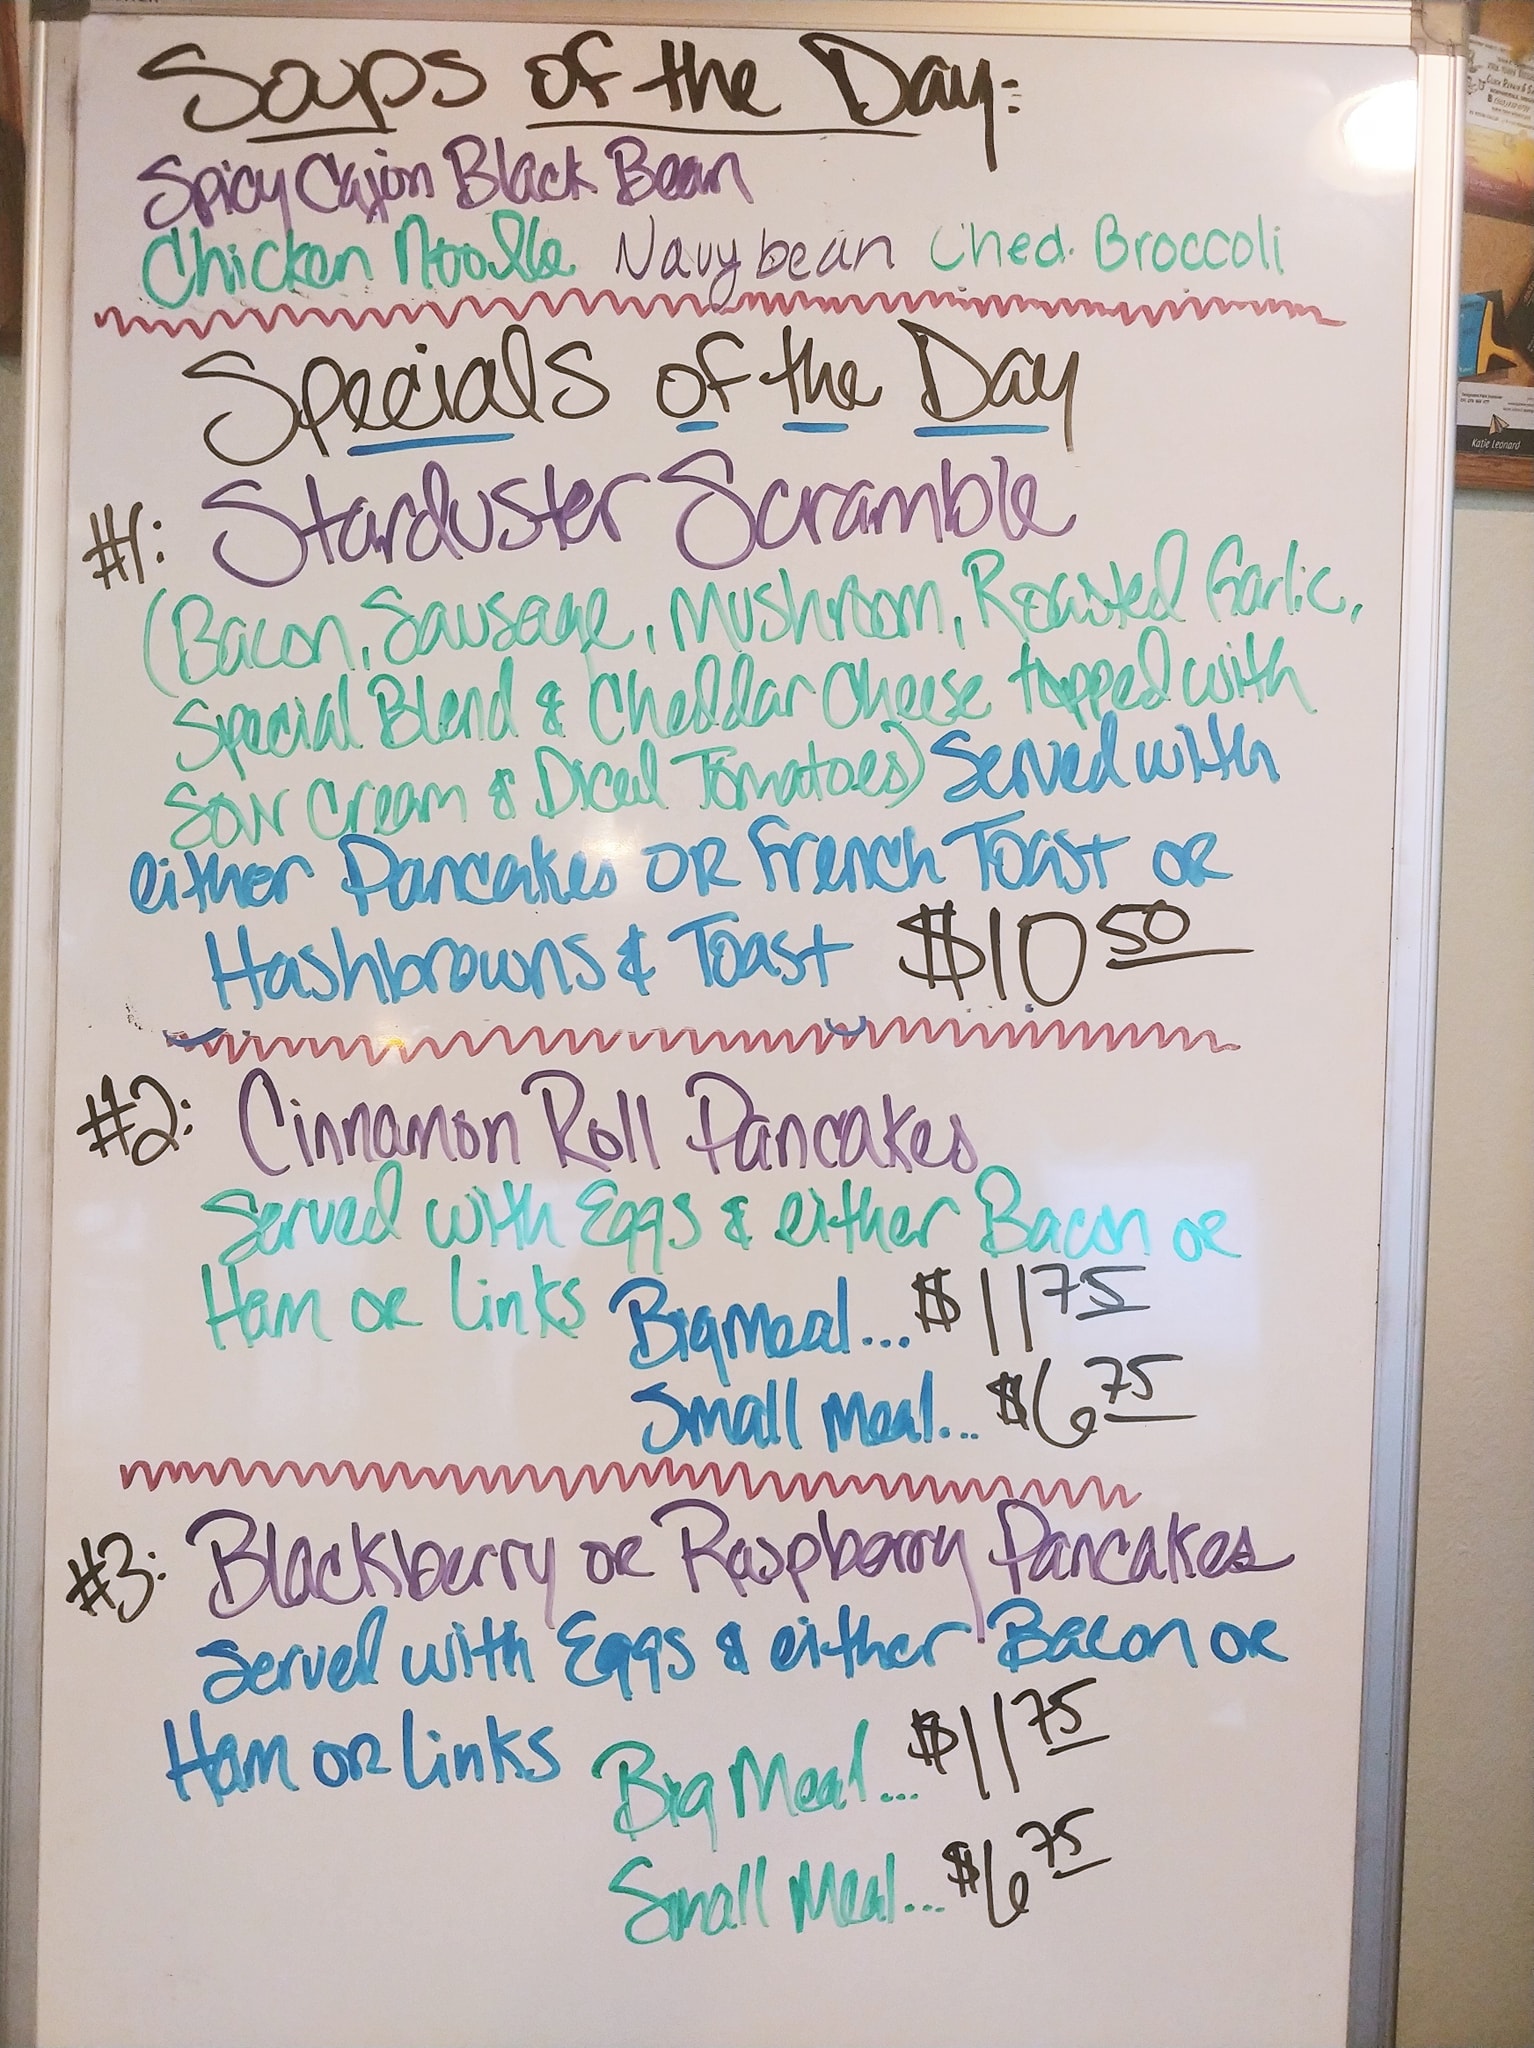 Soups of the Day:
Spicy Cajon Black Bean
Chicken Noodle Navy bean Ched. Broccoli
Specials of the Day
#1: Starduster Scramble
(Bacon, Sausage, Mushroom, Roasted Garlic,
Special Blend & Cheddar Cheese topped with
Sour Cream & Diced Tomatoes) Served with
either Pancakes OR French Toast OR
Hashbrowns & Toast $10 50
#2: Cinnamon Roll Pancakes
Served with Eggs & either Bacon OR
Ham OR Links Big Meal... $11 75
Small Meal... $6 75
#3: Blackberry OR Raspberry Pancakes
Served with Eggs & either Bacon OR
Ham OR Links Big Meal... $11 75
Small Meal... $6 75
Katie Leonard